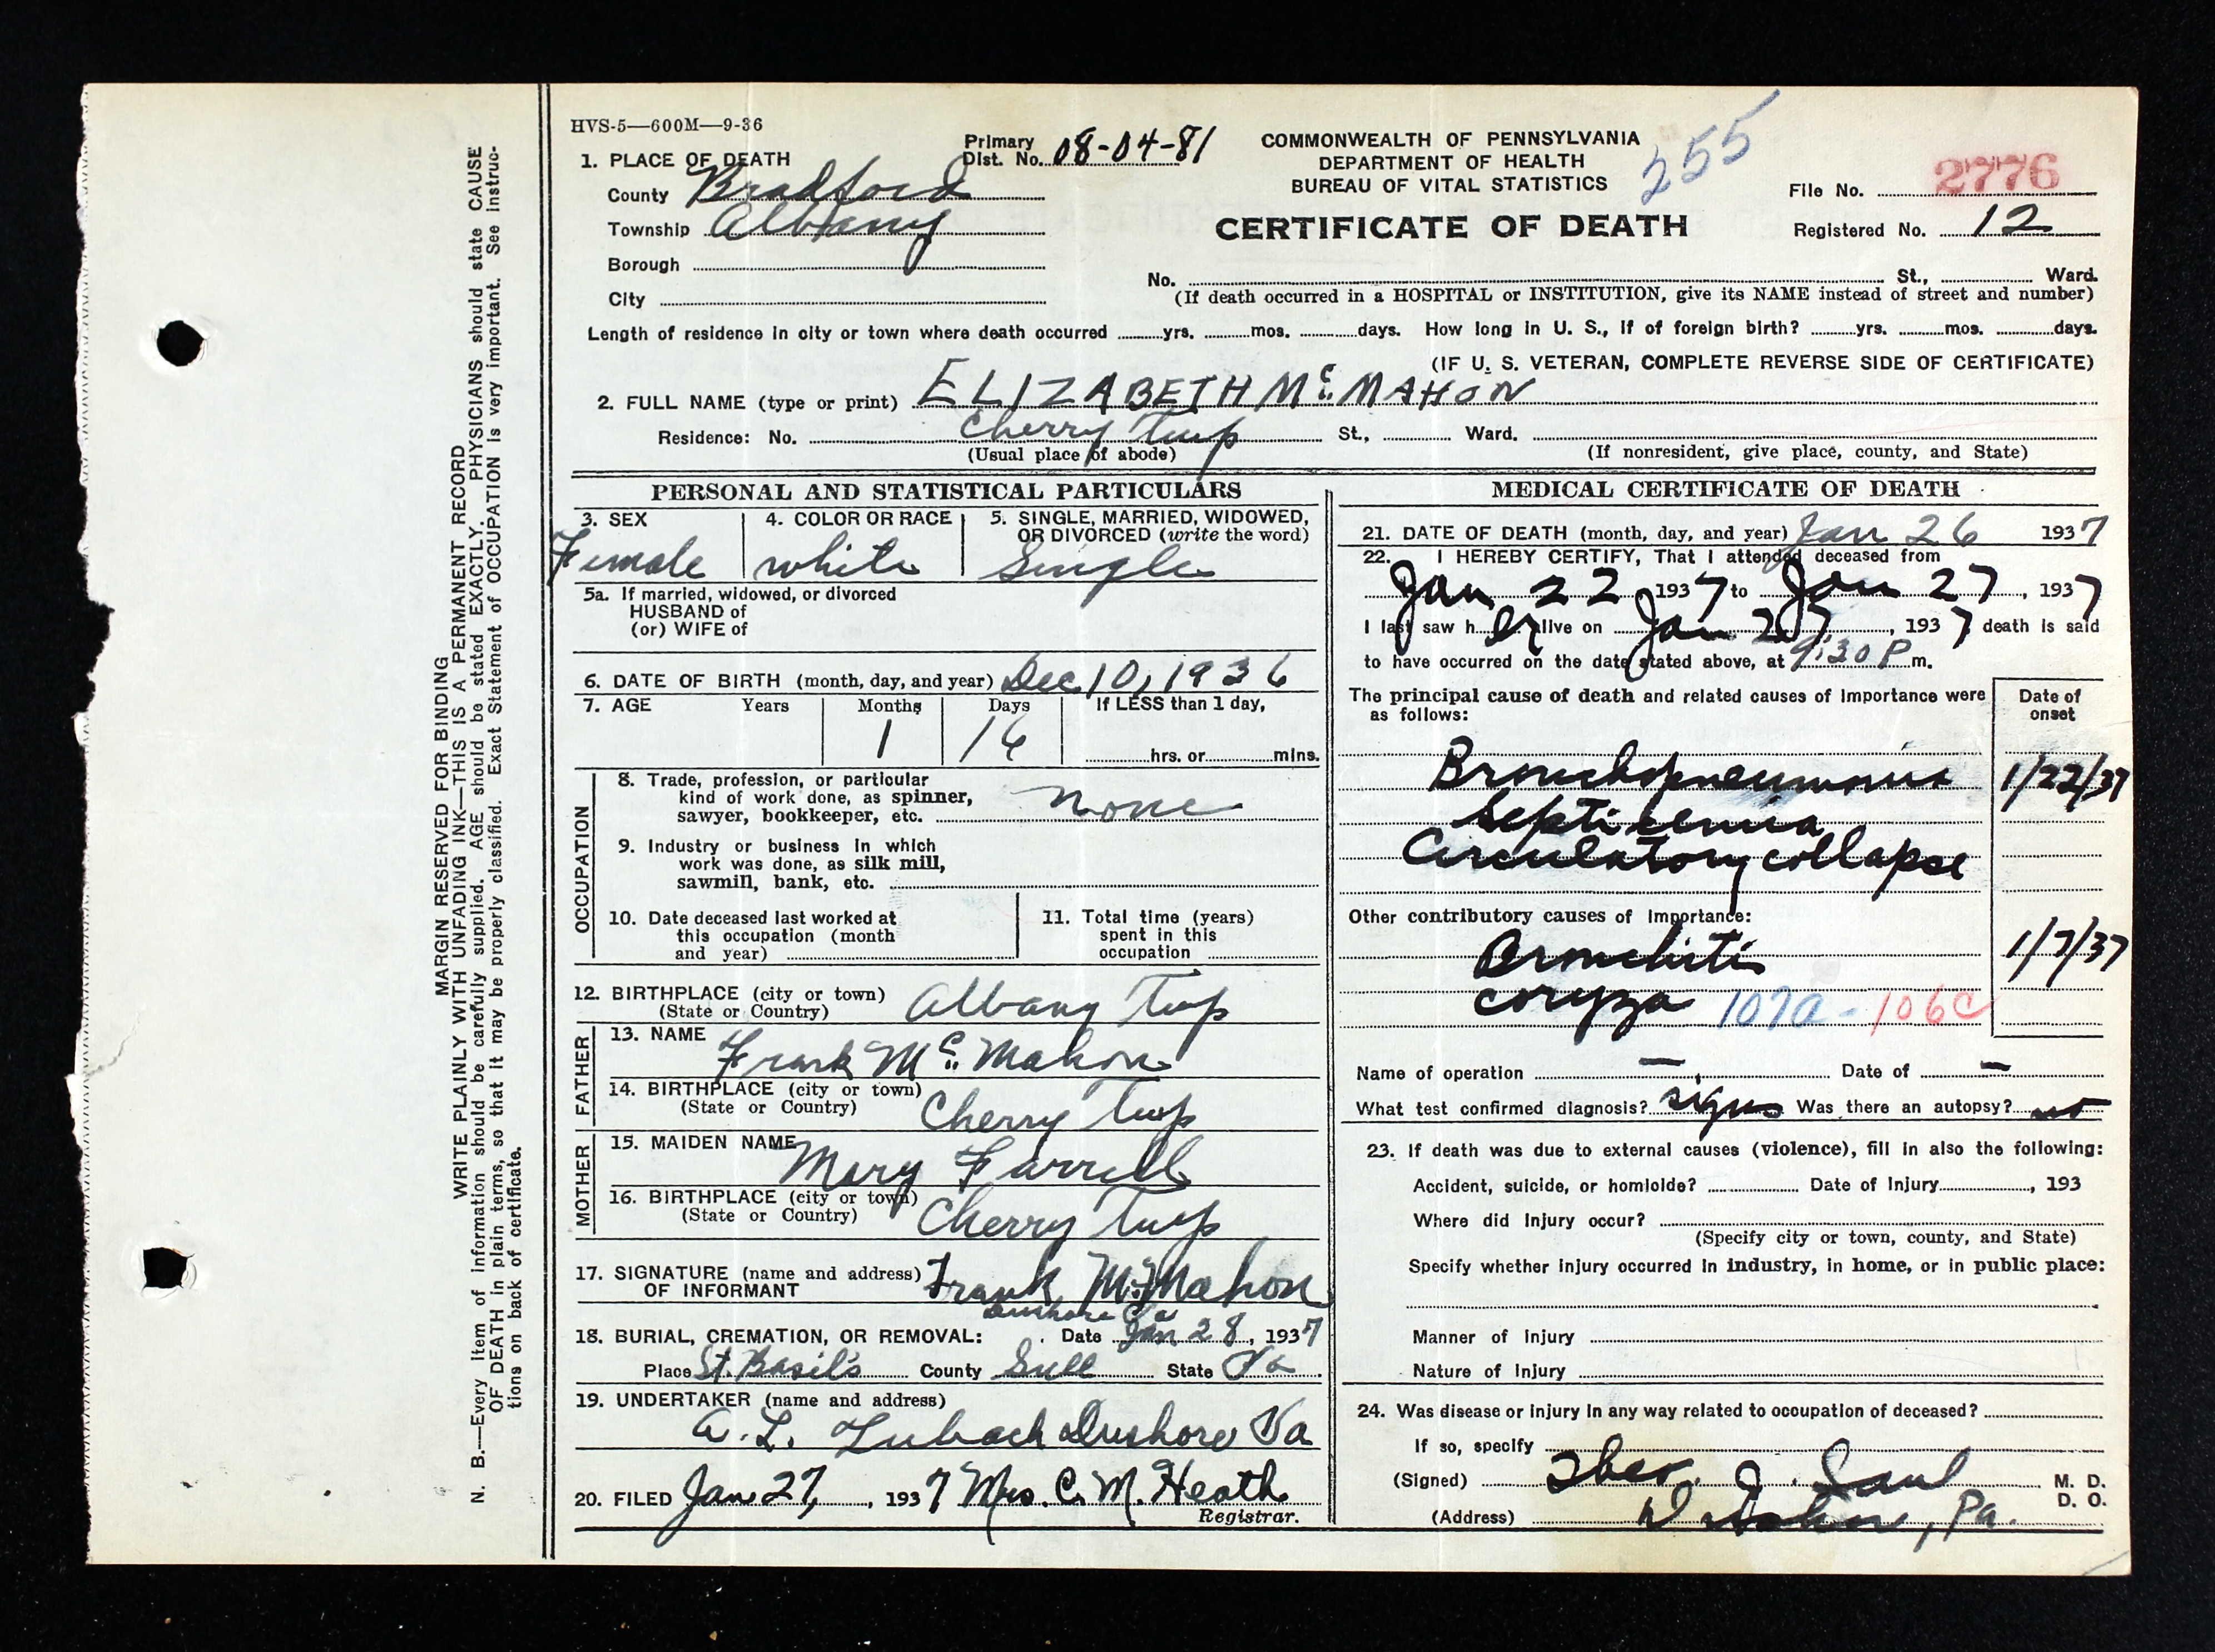 HVS-5—600M—9-36
Primary
Dist. No. 08-04-81
COMMONWEALTH OF PENNSYLVANIA
DEPARTMENT OF HEALTH
BUREAU OF VITAL STATISTICS
255
CERTIFICATE OF DEATH
File No. 2776
Registered No. 12
1. PLACE OF DEATH
County Bradford
Township Albany
Borough
City
No. St., Ward.
(If death occurred in a HOSPITAL or INSTITUTION, give its NAME instead of street and number)
Length of residence in city or town where death occurred yrs. mos. days. How long in U. S., if of foreign birth? yrs. mos. days.
(IF U. S. VETERAN, COMPLETE REVERSE SIDE OF CERTIFICATE)
2. FULL NAME (type or print) ELIZABETH McMAHON
Residence: No. Cherry Twp St., Ward.
(Usual place of abode) (If nonresident, give place, county, and State)
PERSONAL AND STATISTICAL PARTICULARS
3. SEX 4. COLOR OR RACE 5. SINGLE, MARRIED, WIDOWED,
OR DIVORCED (write the word)
Female white Single
5a. If married, widowed, or divorced
HUSBAND of
(or) WIFE of
6. DATE OF BIRTH (month, day, and year) Dec 10, 1936
7. AGE Years Months Days If LESS than 1 day,
1 16 hrs. or mins.
OCCUPATION
8. Trade, profession, or particular
kind of work done, as spinner,
sawyer, bookkeeper, etc. none
9. Industry or business in which
work was done, as silk mill,
sawmill, bank, etc.
10. Date deceased last worked at
this occupation (month
and year)
11. Total time (years)
spent in this
occupation
12. BIRTHPLACE (city or town) Albany Twp
(State or Country)
FATHER
13. NAME Frank McMahon
14. BIRTHPLACE (city or town) Cherry Twp
(State or Country)
MOTHER
15. MAIDEN NAME Mary Farrell
16. BIRTHPLACE (city or town) Cherry Twp
(State or Country)
17. SIGNATURE (name and address) Frank McMahon
OF INFORMANT
Dushore Pa
18. BURIAL, CREMATION, OR REMOVAL: Date Jan 28, 1937
Place St. Basil's County Sull State Pa
19. UNDERTAKER (name and address)
A. L. Dushore Pa
20. FILED Jan 27, 1937 Mrs. C. M. Heath
Registrar.
MEDICAL CERTIFICATE OF DEATH
21. DATE OF DEATH (month, day, and year) Jan 26 1937
22. I HEREBY CERTIFY, That I attended deceased from
Jan 22, 1937 to Jan 27, 1937
I last saw her alive on Jan, 1937, death is said
to have occurred on the date stated above, at 9:30 P m.
The principal cause of death and related causes of importance were
as follows:
Date of
onset
Bronchopneumonia 1/22/37
Septicemia
Circulatory collapse
Other contributory causes of importance:
Bronchitis 1/7/37
coryza 107a - 106c
Name of operation — Date of —
What test confirmed diagnosis? signs Was there an autopsy? no
23. If death was due to external causes (violence), fill in also the following:
Accident, suicide, or homicide? Date of injury , 193
Where did injury occur?
(Specify city or town, county, and State)
Specify whether injury occurred in industry, in home, or in public place:
Manner of injury
Nature of injury
24. Was disease or injury in any way related to occupation of deceased?
If so, specify
(Signed) Theo. J. Saul M. D.
D. O.
(Address) Dushore, Pa.
MARGIN RESERVED FOR BINDING
WRITE PLAINLY WITH UNFADING INK—THIS IS A PERMANENT RECORD
N. B.—Every item of information should be carefully supplied. AGE should be stated EXACTLY. PHYSICIANS should state CAUSE
OF DEATH in plain terms, so that it may be properly classified. Exact Statement of OCCUPATION is very important. See instruc-
tions on back of certificate.